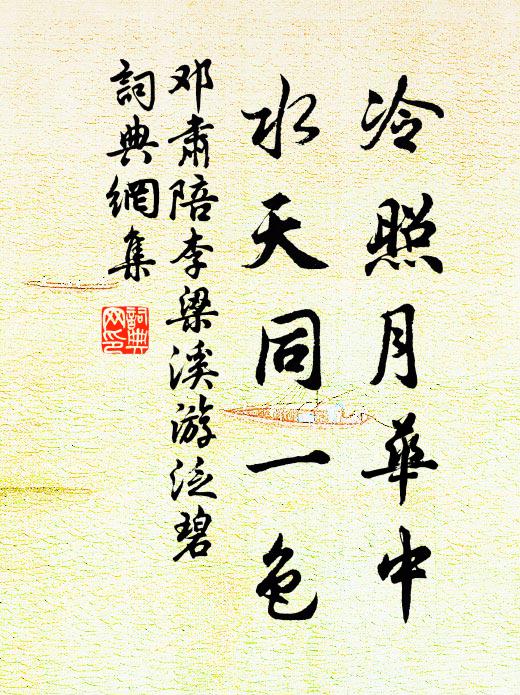 冷照月華中
水天同一色
邓肃陪李梁溪游泛碧
詞典網集
詞典网印